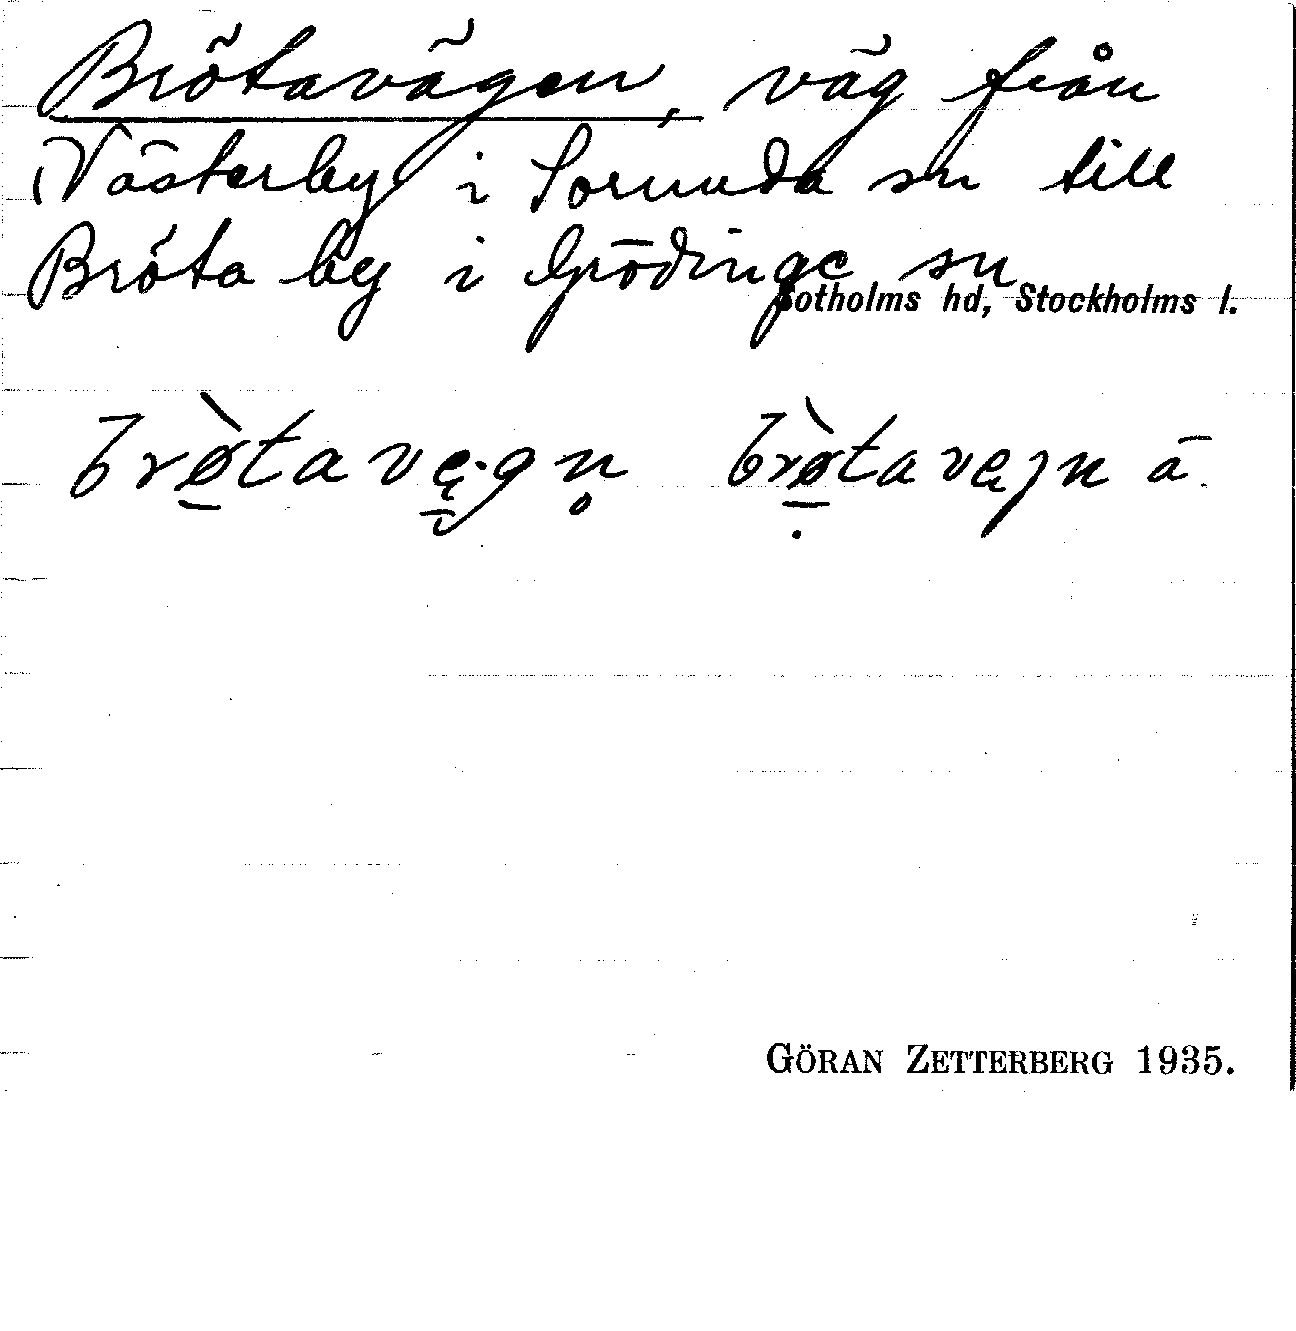 Brötavägen, väg från
Västerby i Sorunda sn till
Bröta by i Grödinge sn
Sotholms hd, Stockholms l.
brø̀tavę·gn̥ brø̀tavęȷn ä.
GÖRAN ZETTERBERG 1935.